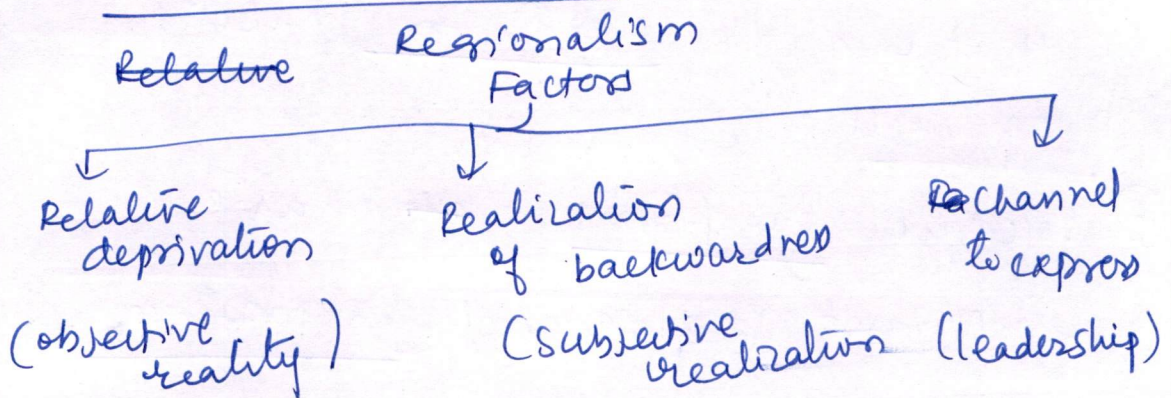 Regionalism
Relative
Factors
Relative
deprivation
(objective
reality)
Realization
of backwardness
(subjective
realization
Channel
to express
(leadership)